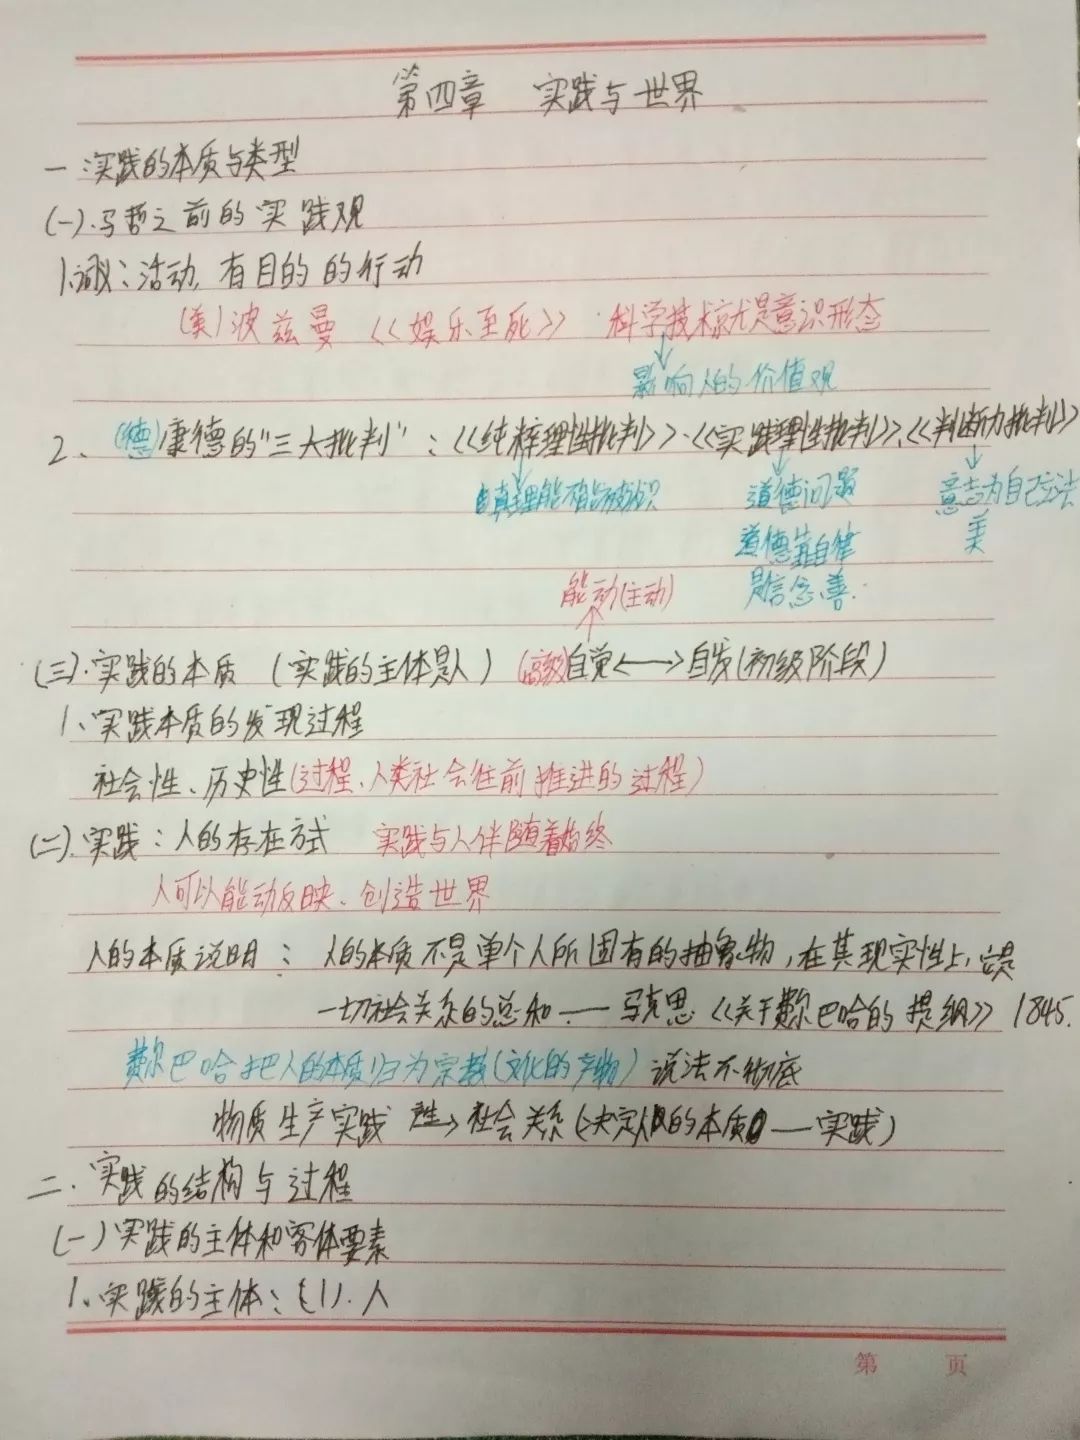 第四章 实践与世界
一.实践的本质与类型
(一).马哲之前的实践观
1.词义:活动,有目的的行动
(美)波兹曼《娱乐至死》·科学技术就是意识形态
影响人的价值观
2、(德)康德的"三大批判":《纯粹理性批判》·《实践理性批判》、《判断力批判》
真理能不能被认识 道德问题 意志为自己立法
道德靠自律 美
能动(主动) 是信念善.
(三).实践的本质 (实践的主体是人) (高级)自觉<—>自发(初级阶段)
1、实践本质的发现过程
社会性、历史性(过程、人类社会往前推进的过程)
(二).实践:人的存在方式 实践与人伴随着始终
人可以能动反映、创造世界
人的本质说明:人的本质不是单个人所固有的抽象物,在其现实性上,它是
一切社会关系的总和——马克思《关于费尔巴哈的提纲》1845.
费尔巴哈把人的本质归为宗教(文化的产物)说法不彻底
物质生产实践 → 社会关系(决定人的本质—实践)
二.实践的结构与过程
(一)实践的主体和客体要素
1、实践的主体:(1).人
第 页